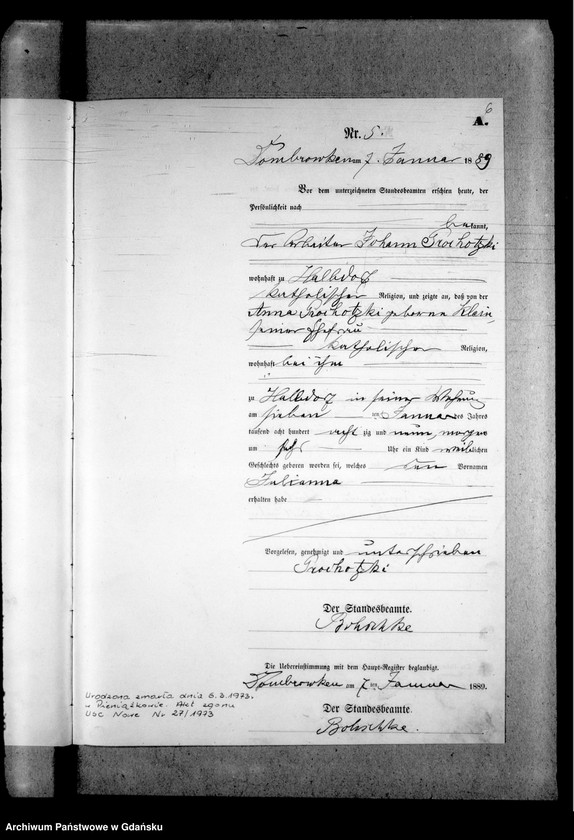 6
A.
Nr. 5.
Dombrowken am 7. Januar 1889
Vor dem unterzeichneten Standesbeamten erschien heute, der
Persönlichkeit nach
bekannt,
der Arbeiter Johann Prochotzki
wohnhaft zu Halbdorf
katholischer Religion, und zeigte an, daß von der
Anna Prochotzki geborene Klein,
seiner Ehefrau
katholischer Religion,
wohnhaft bei ihm
zu Halbdorf in seiner Wohnung
am sieben ten Januar des Jahres
tausend acht hundert acht zig und neun, morgens
um Uhr ein Kind weiblichen
Geschlechts geboren worden sei, welches den Vornamen
Julianna
erhalten habe
Vorgelesen, genehmigt und unterschrieben
Prochotzki
Der Standesbeamte.
Die Uebereinstimmung mit dem Haupt-Register beglaubigt.
Dombrowken am 7 ten Januar 1889.
Der Standesbeamte
Urodzona zmarła dnia 6.3.1973.
w Pieniążkowie. Akt zgonu
USC Nowe Nr 27/1973
Archiwum Państwowe w Gdańsku